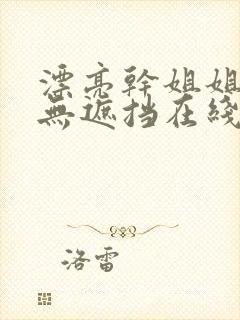 漂亮幹姐姐
無遮挡在綫
洛雷